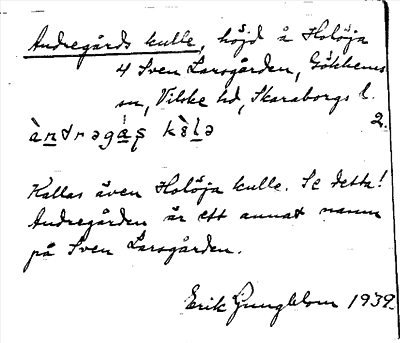 Andregårds kulle, höjd å Holöja
4 Sven Larsgården, Gökhems
sn, Vilske hd, Skaraborgs l.
2.
àndrəgás kèlə
Kallas även Holöja kulle. Se detta!
Andregården är ett annat namn
på Sven Larsgården.
Erik Ljungblom 1939.